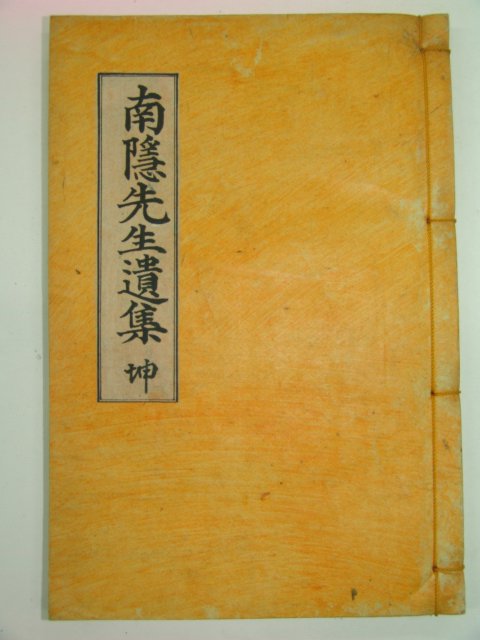 南隱先生遺集 坤